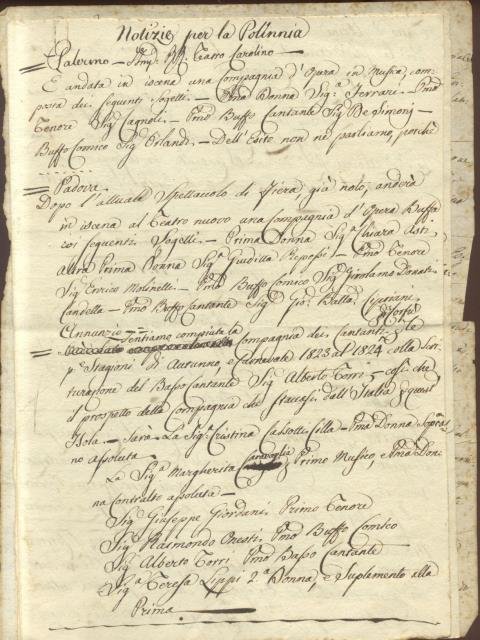 Notizie per la Polinnia
Palermo — Imp. R. Teatro Carolino —
È andata in iscena una Compagnia d'Opera in Musica com-
posta dei seguenti Sogetti — Pma Donna Sig.ª Ferrari — Pmo
Tenore Sig.r Cagnoli — Pmo Buffo Cantante Sig.r De Simoni —
Buffo Comico Sig.r Orlandi — Dell'Esito non ne parliamo, perchè
Padova
Dopo l'attuale Spettacolo di Fiera, già noto, anderà
in iscena al Teatro nuovo una Compagnia d'Opera Buffa
coi seguenti Sogetti — Prima Donna Sig.ª Chiara
altra Prima Donna Sig.ª Giuditta — Pmo Tenore
Sig.r Enrico Molinelli — Pmo Buffo Comico Sig.r Girolamo Donati
Candella — Pmo Buffo Cantante Sig.r Gio. Batta. Cipriani
Corfù
Annunzio
Sentiamo compiuta la Compagnia dei Cantanti p. le
p.e Stagioni di Autunno, e Carnevale 1823 al 1824 colla
del Basso Cantante Sig.r Alberto Torri — così che
il prospetto della Compagnia che dall'Italia p. quell'
Isola — Sarà — La Sig.ª Cristina Casotti Cilla — Pma Donna Sopra-
no assoluta
La Sig.ª Margherita Caravaglia Primo Musico, e Pma Don-
na Contralto assoluta —
Sig.r Giuseppe Giordani Primo Tenore
Sig.r Raimondo Onesti Pmo Buffo Comico
Sig.r Alberto Torri Pmo Basso Cantante
Sig.ª Teresa Lippi 2.ª Donna, e Suplemento alla
Prima